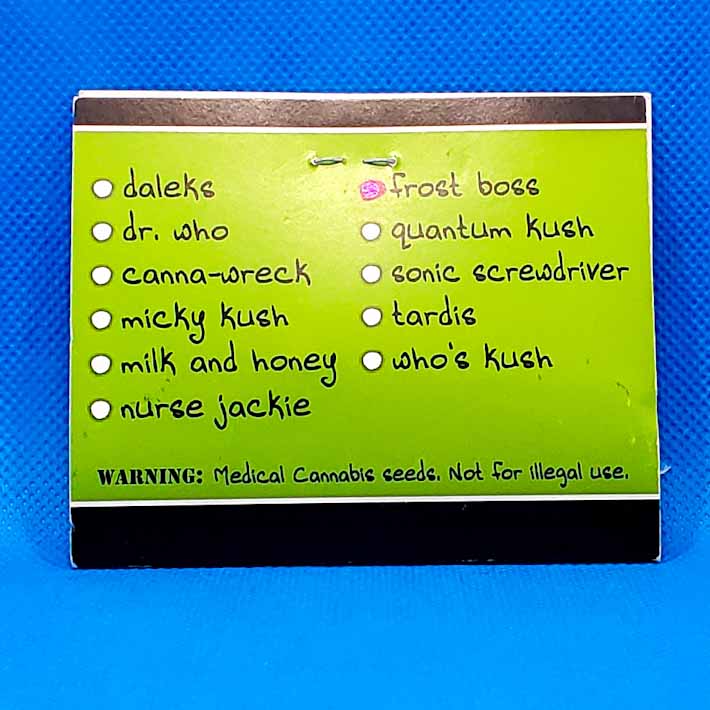 daleks
dr. who
canna-wreck
micky kush
milk and honey
nurse jackie
frost boss
quantum kush
sonic screwdriver
tardis
who's kush
WARNING: Medical Cannabis seeds. Not for illegal use.